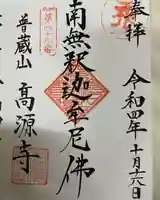 奉拝
令和四年十月十六日
南無釈迦牟尼佛
普蔵山
高源寺